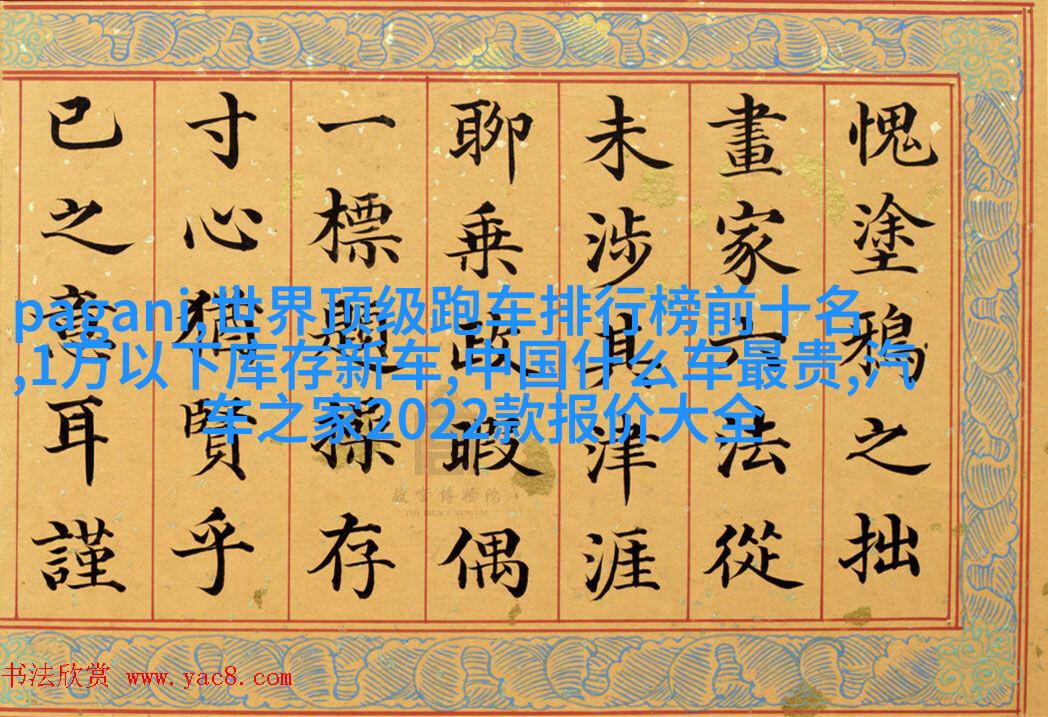 愧塗鴉之拙
畫家六法從
未涉其津涯
聊乘政暇偶
一標題操存
寸心猶賢乎
已之意耳謹
pagani,世界顶级跑车排行榜前十名
,1万以下库存新车,中国什么车最贵,汽
车之家2022款报价大全
故宫博物院
THE PALACE MUSEUM
书法欣赏 www.yac8.com